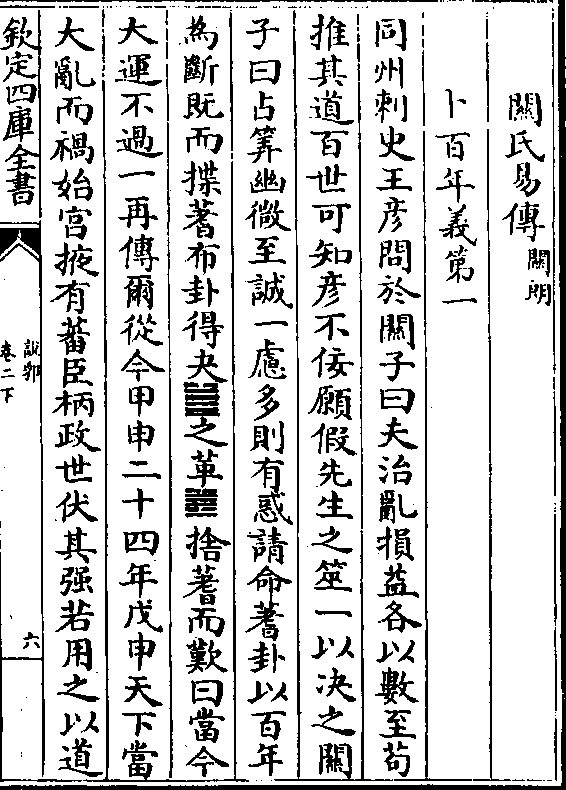 關氏易傳 關朗
卜百年義第一
同州刺史王彥問於關子曰夫治亂損益各以數至茍
推其道百世可知彥不佞願假先生之筮一以决之關
子曰占筭幽微至誠一慮多則有惑請命蓍卦以百年
為斷既而揲蓍布卦得夬䷪之革䷰捨蓍而歎曰當今
大運不過一再傳爾從今甲申二十四年戊申天下當
大亂而禍始宮掖有蕃臣柄政世伏其强若用之以道
欽定四庫全書
說郛
卷二下
六